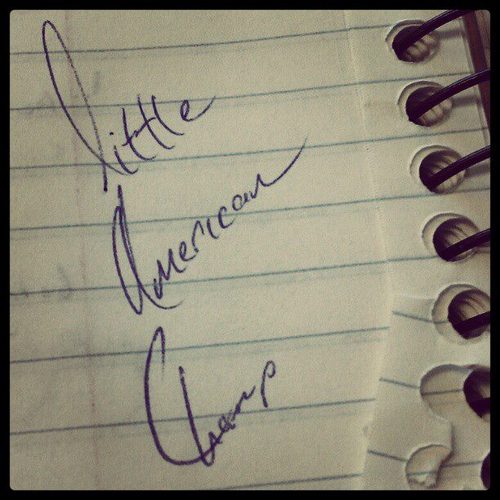 Little
American
Champ